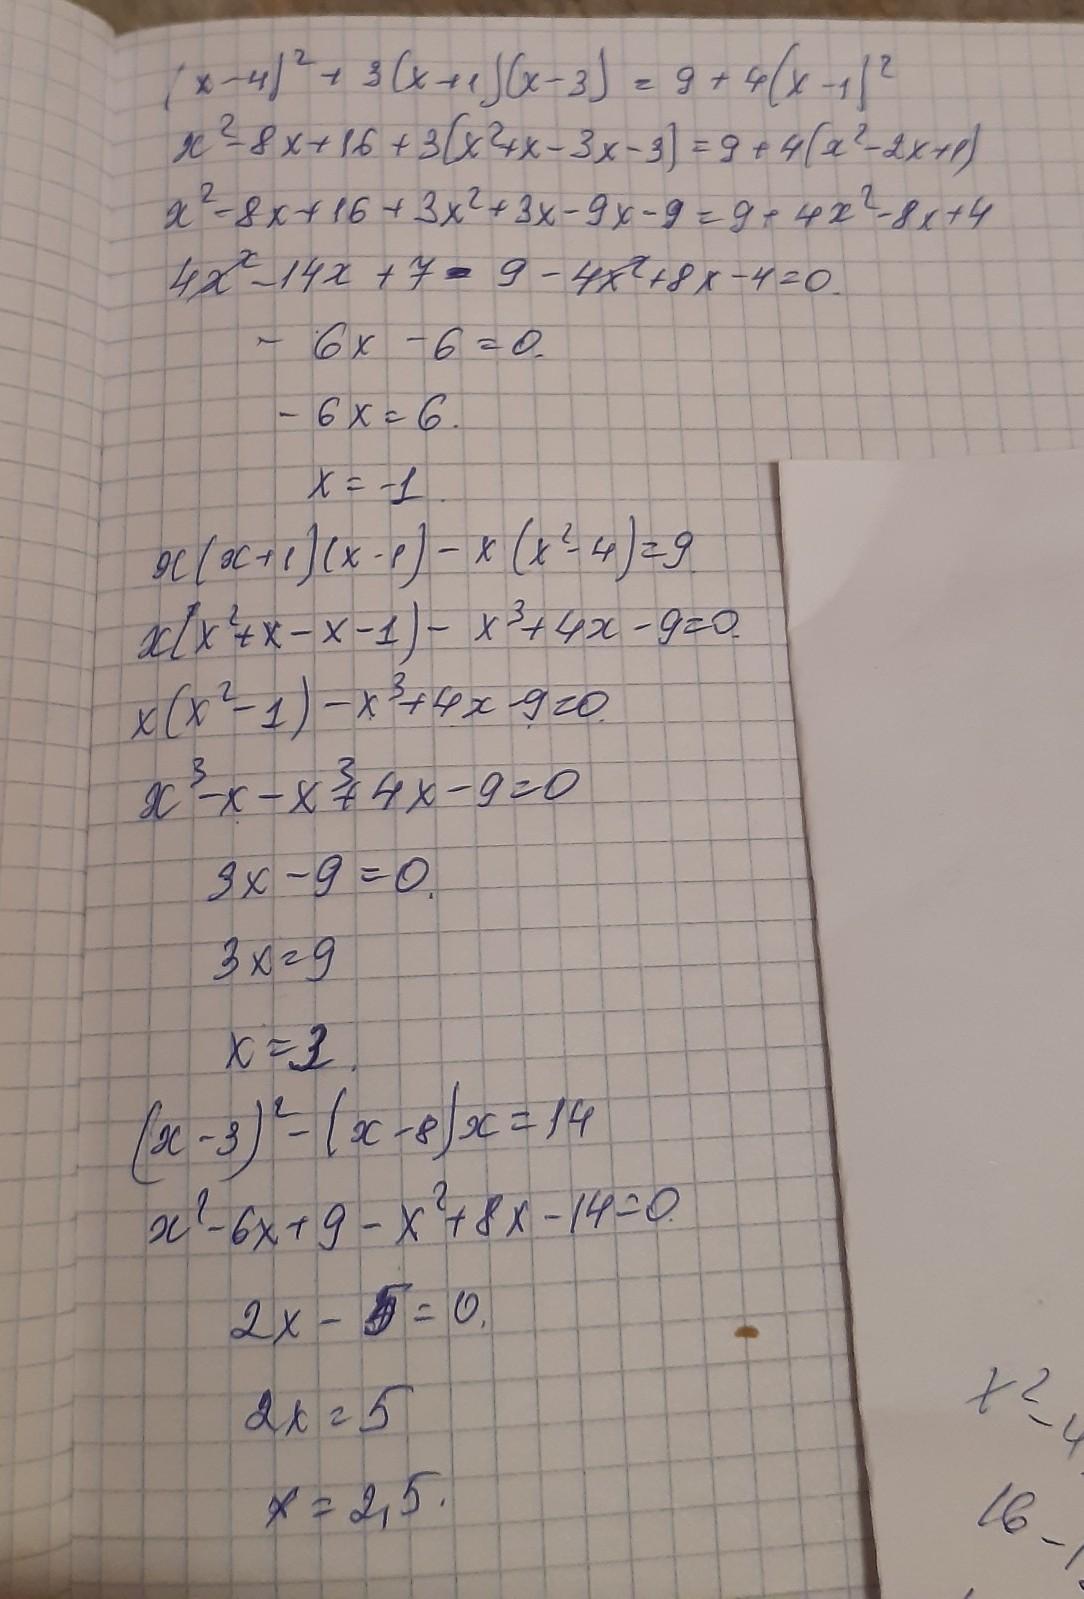 (x-4)² + 3(x+1)(x-3) = 9 + 4(x-1)²
x²-8x+16 + 3(x²+x-3x-3) = 9 + 4(x²-2x+1)
x²-8x+16 + 3x²+3x-9x-9 = 9 + 4x²-8x+4
4x²-14x + 7 - 9 - 4x²+8x-4=0.
- 6x - 6 = 0.
- 6x = 6.
x = -1.
x(x+1)(x-1) - x(x²-4) = 9
x(x²+x-x-1) - x³+4x-9=0.
x(x²-1) - x³+4x-9=0.
x³-x-x³+4x-9=0
3x-9=0.
3x=9
x=3.
(x-3)² - (x-8)x = 14
x²-6x+9-x²+8x-14=0.
2x - 5 = 0.
2x = 5
x = 2,5.
x²-4
16-1